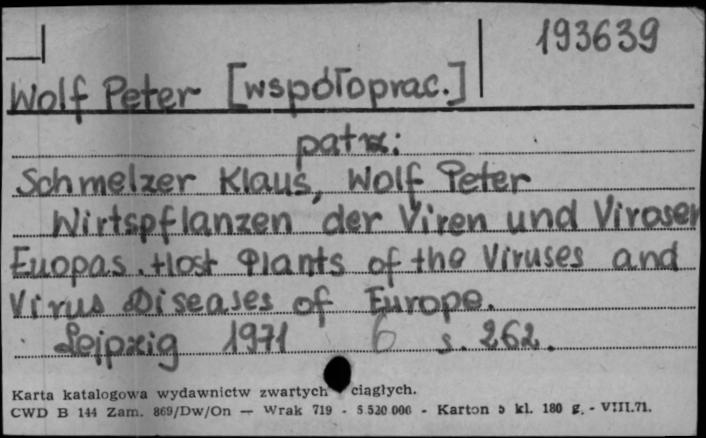 193639
Wolf Peter [współoprac.]
patrz:
Schmelzer Klaus, Wolf Peter
Wirtspflanzen der Viren und Virosen
Euopas. Host Plants of the Viruses and
Virus Diseases of Europe.
Leipzig 1971 6 s. 262.
Karta katalogowa wydawnictw zwartych ciągłych.
CWD B 144 Zam. 869/Dw/On — Wrak 719 - 5.520.000 - Karton 5 kl. 180 g. - VIII.71.